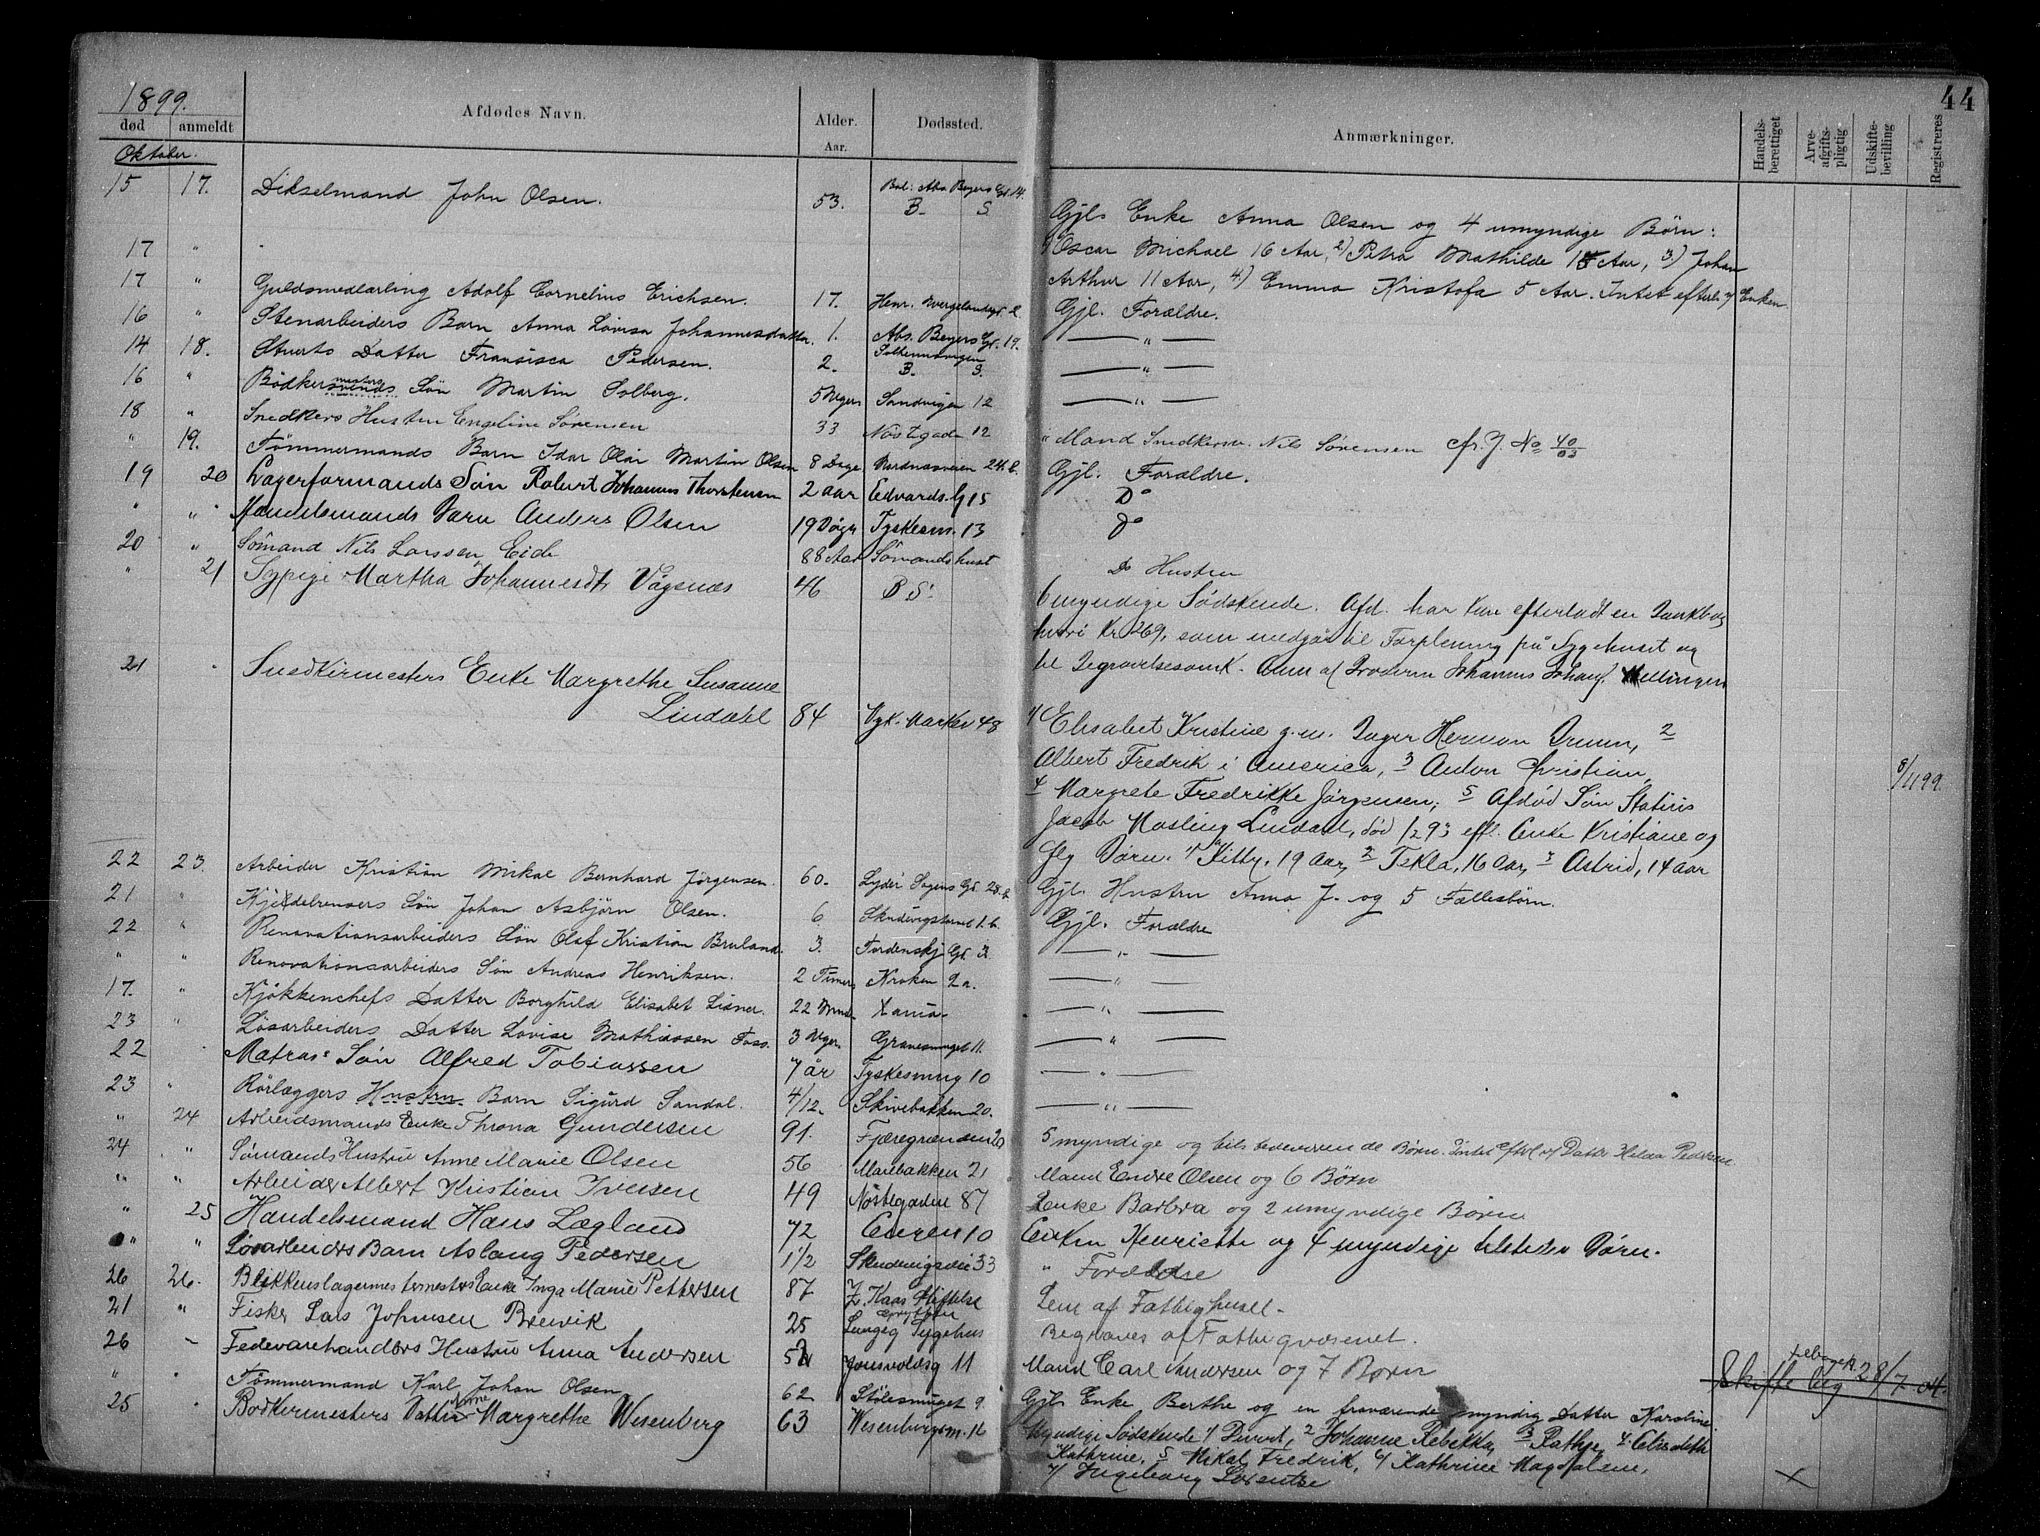 44
1899.
død anmeldt Afdødes Navn. Alder. Aar. Dødssted. Anmærkninger. Handelsberettiget Arveafgiftspligtig Udskiftebevilling Registreres
Oktober.
15 17. Dikselmand John Olsen. 53. Bol: Abs Beyers Gt. 14. B. S. Gjl. Enke Anna Olsen og 4 umyndige Børn:
17 " 1) Oscar Michael 16 Aar, 2) Petra Mathilde Aar, 3) Johan
Arthur 11 Aar, 4) Emma Kristofa 5 Aar. Intet efterl. Enken
17 " Guldsmedlærling Adolf Cornelius Erichsen. 17. Henr. Wergelandsgt. 2 Gjl. Forældre.
16 Stenarbeiders Barn Anna Lovisa Johannesdatter. 1. Abs. Beyers Gt. 19. — " —
14 18. Stuerts Datter Fransisca Pedersen. 2. B. S. — " —
16 " Bödkermesters Søn Martin Solberg. 5 Uger Sandvigen 12 — " —
18 " Snedkers Hustru Engeline Sørensen 33 Nöstegade 12 " Mand Snedkersv. Nils Sørensen cfr. J. No 40/03
" 19. Tömmermands Barn Idar Olai Martin Olsen 8 Dage Nordnæsveien 24. b. Gjl. Forældre.
19 20 Lagerformands Søn Robert Johannes Thorstensen 2 aar Edvards. G 15 Do
" " Handelsmands Barn Anders Olsen 19 Døgn Tyskesm. 13 Do
20 " Sömand Nils Larssen Eide 88 Aar Sömandshuset Do Hustru
" 21 Sypige Martha Johannesdt Vågsnæs 46 B S. 6 myndige Södskende. Afd. har kun efterladt en Bankbog
Kr 269, som medgår til Forpleining på Sygehuset og
til Begravelsesomk. Anm af Broderen Johannes Johans. Mellingen
21 " Snedkermesters Enke Margrethe Susanne
Lindahl 84 Nyk. Markev 48 1/ Elisabet Kristine g.m. Bager Herman Bruun, 2
Albert Fredrik i America, 3 Anton Christian,
4 Margrete Fredrikke Jørgensen, 5 Afdød Søn Statius
Jacob Mosling Lindahl, død 1/2 93 efl. Enke Kristiane og
flg Børn. 1/ Kitty. 19 Aar, 2 Tekla, 16 Aar, 3 Astrid, 14 aar
8/11 99.
22 23. Arbeider Kristian Mikal Bernhard Jörgensen. 60. Lyder Sagens Gt. 28. b Gjl. Hustru Anna J. og 5 Fællesbörn.
21 " Kjeldelrensers Søn Johan Asbjörn Olsen. 6 Skudevigstorvet 1. b. Gjl. Forældre
22 " Renovationsarbeiders Søn Olaf Kristian Bruland. 3. Tordenskj Gt. 3. — " —
" " Renovationsarbeiders Søn Andreas Henriksen. 2 Timer Kroken 2 a. — " —
17. " Kjökkenchefs Datter Borghild Elisabet Lisner. 22 Mnd. Xania. — " —
23 " Lösarbeiders Datter Lovise Mathiassen Foss. 3 Uger. Gravesmuget 11. — " —
22 " Matros' Søn Alfred Tobiassen 7 år Tyskesmug 10 — " —
23 " Rörlæggers Hustru Barn Sigurd Sandal. 4/12. Skivebakken 20. — " —
" 24 Arbeidsmands Enke Throna Gundersen 91. Fjæregrænden 5 myndige og tilstedeværende Børn. Intet Eftl. v/ Datter Helda Pedersen
24 " Sømands Hustru Anne Marie Olsen 56 Marebakken 21 Mand Endre Olsen og 6 Børn
" " Arbeider Albert Kristian Iversen 49 Nöstegaden 87 Enke Barbra og 2 umyndige Børn
" 25 Handelsmand Hans Lægland 72 Engen 10 Enken Henriette og 4 myndige tilsteder. Børn.
" " Lösarbeiders Barn Aslaug Pedersen 1 1/2 Skudevigsvei 33 " Forældre
26 26. Blikkenslagermestersters Enke Inga Marie Pettersen 87 Z. Kaas Stiftelse Lem af Fattighuset.
21 " Fisker Lars Johnsen Breivik 25 Lungeg Sygehus Begraves af Fattigvæsenet.
26 - Fedevarehandlers Hustru Anna Andersen 52 Jonsvoldsg 11 Mand Carl Andersen og 7 Børn Skifte beg 28/7 04.
" " Tömmermand Karl Johan Olsen 62 Stölesmuget 9 Gjl. Enke Berthe og en fraværende myndig Datter Karoline
25 " Bodkermesters Datter Margrethe Wesenberg 63 Wesenbergsm. 16 Myndige Sødskende 1/ 2 Johanne Rebekka, 3 4 Elisabeth
Kathrine, 5 Mikal Fredrik, 6/ Kathrine Magdalene,
7/ Ingeborg Lorentse ×